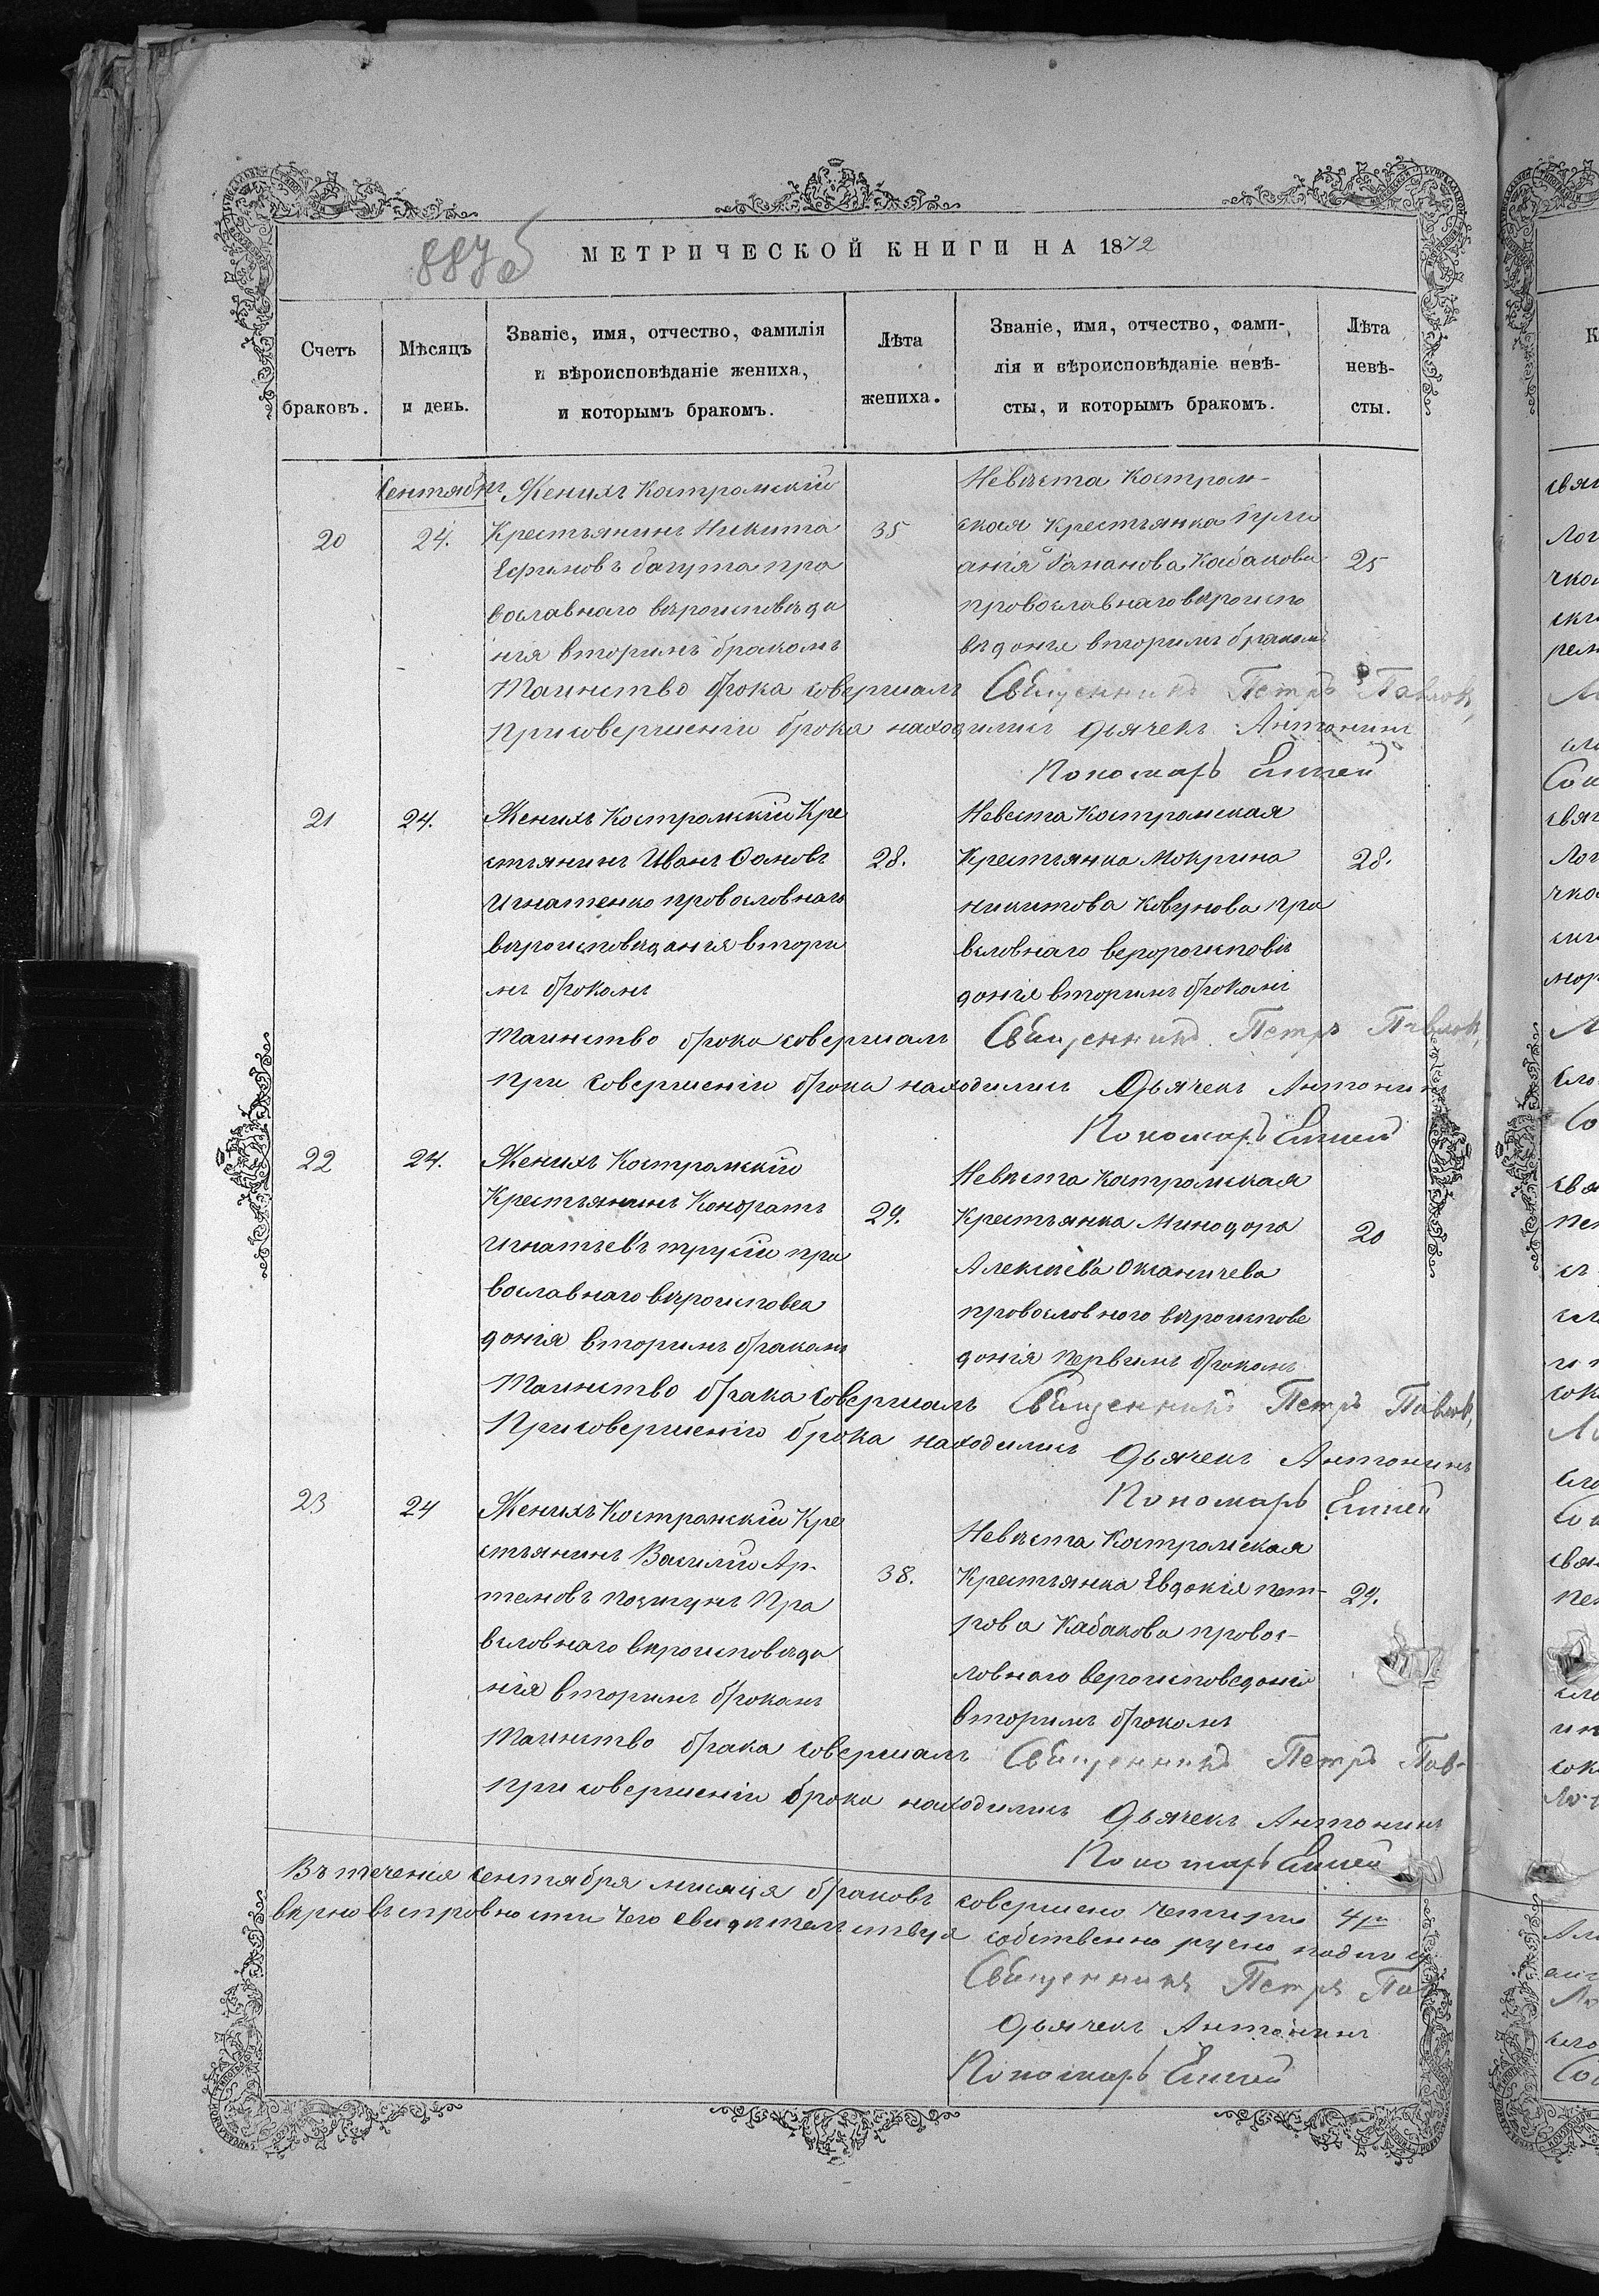 887об
МЕТРИЧЕСКОЙ КНИГИ НА 1872
Счетъ браковъ.
Мѣсяцъ и день.
Званіе, имя, отчество, фамилія
и вѣроисповѣданіе жениха,
и которымъ бракомъ.
Лѣта жениха.
Званіе, имя, отчество, фами-
лія и вѣроисповѣданіе невѣ-
сты, и которымъ бракомъ.
Лѣта невѣ-
сты.
Сентябрь
20
24.
Женихъ Костромскій
Крестьянинъ Никита
Ефимовъ багута пра
вославнаго вѣроисповѣда
нія вторимъ бракомъ
35
Невѣста Костром-
ская крестьянка Iули
анія Романова Кабакова
провославнаго вѣроиспо
вѣдонія вторимъ бракомъ
25
Таинство брока совершалъ Священникъ Петръ Павлов,
При совершеніи брока находились Дьячекъ Антонинъ
Пономарь Елисей
21
24.
Женихъ Костромскій Кре
стьянинъ Иванъ Фомовъ
Игнатенко провословнаго
вѣроисповѣданія втори
мъ брокомъ
28.
Невеста Костромская
Крестьянка Мокрина
никитова Ковунова пра
вословнаго веророисповѣ
донія вторимъ брокомъ
28.
Таинство брока совершалъ Священникъ Петръ Павлов,
При совершеніи брока находились Дьячекъ Антонинъ
Пономарь Елисей
22
24.
Женихъ Костромскій
Крестьянинъ Кондратъ
Игнатьевъ пра
вославнаго вѣроисповеа
донія вторимъ бракомъ
29.
Невѣста костромская
крестьянка Минодора
Алексѣева Оксаничева
провословного вѣроиспове
донія первимъ брокомъ
20
Таинство брака совершалъ Священникъ Петръ Павлов,
При совершеніи брока находились Дьячекъ Антонинъ
Пономарь Елисей
23
24
Женихъ Костромскій Кре
стьянинъ Василій Ар-
темовъ Пра
вословнаго вѣроисповѣда
нія вторимъ брокомъ
38.
Невѣста Костромская
Крестьянка Евдокія пет-
рова Кабакова провос-
ловнаго вероисповедонія
вторимъ брокомъ
29.
Таинство брака совершалъ Священникъ Петръ Пав-
При совершеніи брока находились Дьячекъ Антонинъ
Пономарь Елисей
Въ теченія сентября мисяця браковъ совершено четири 4ри
вѣрно въ справности чего свидѣтельствуя собственно ручно подпису
Священникъ Петръ Пав
Дьячекъ Антонинъ
Пономарь Елисей